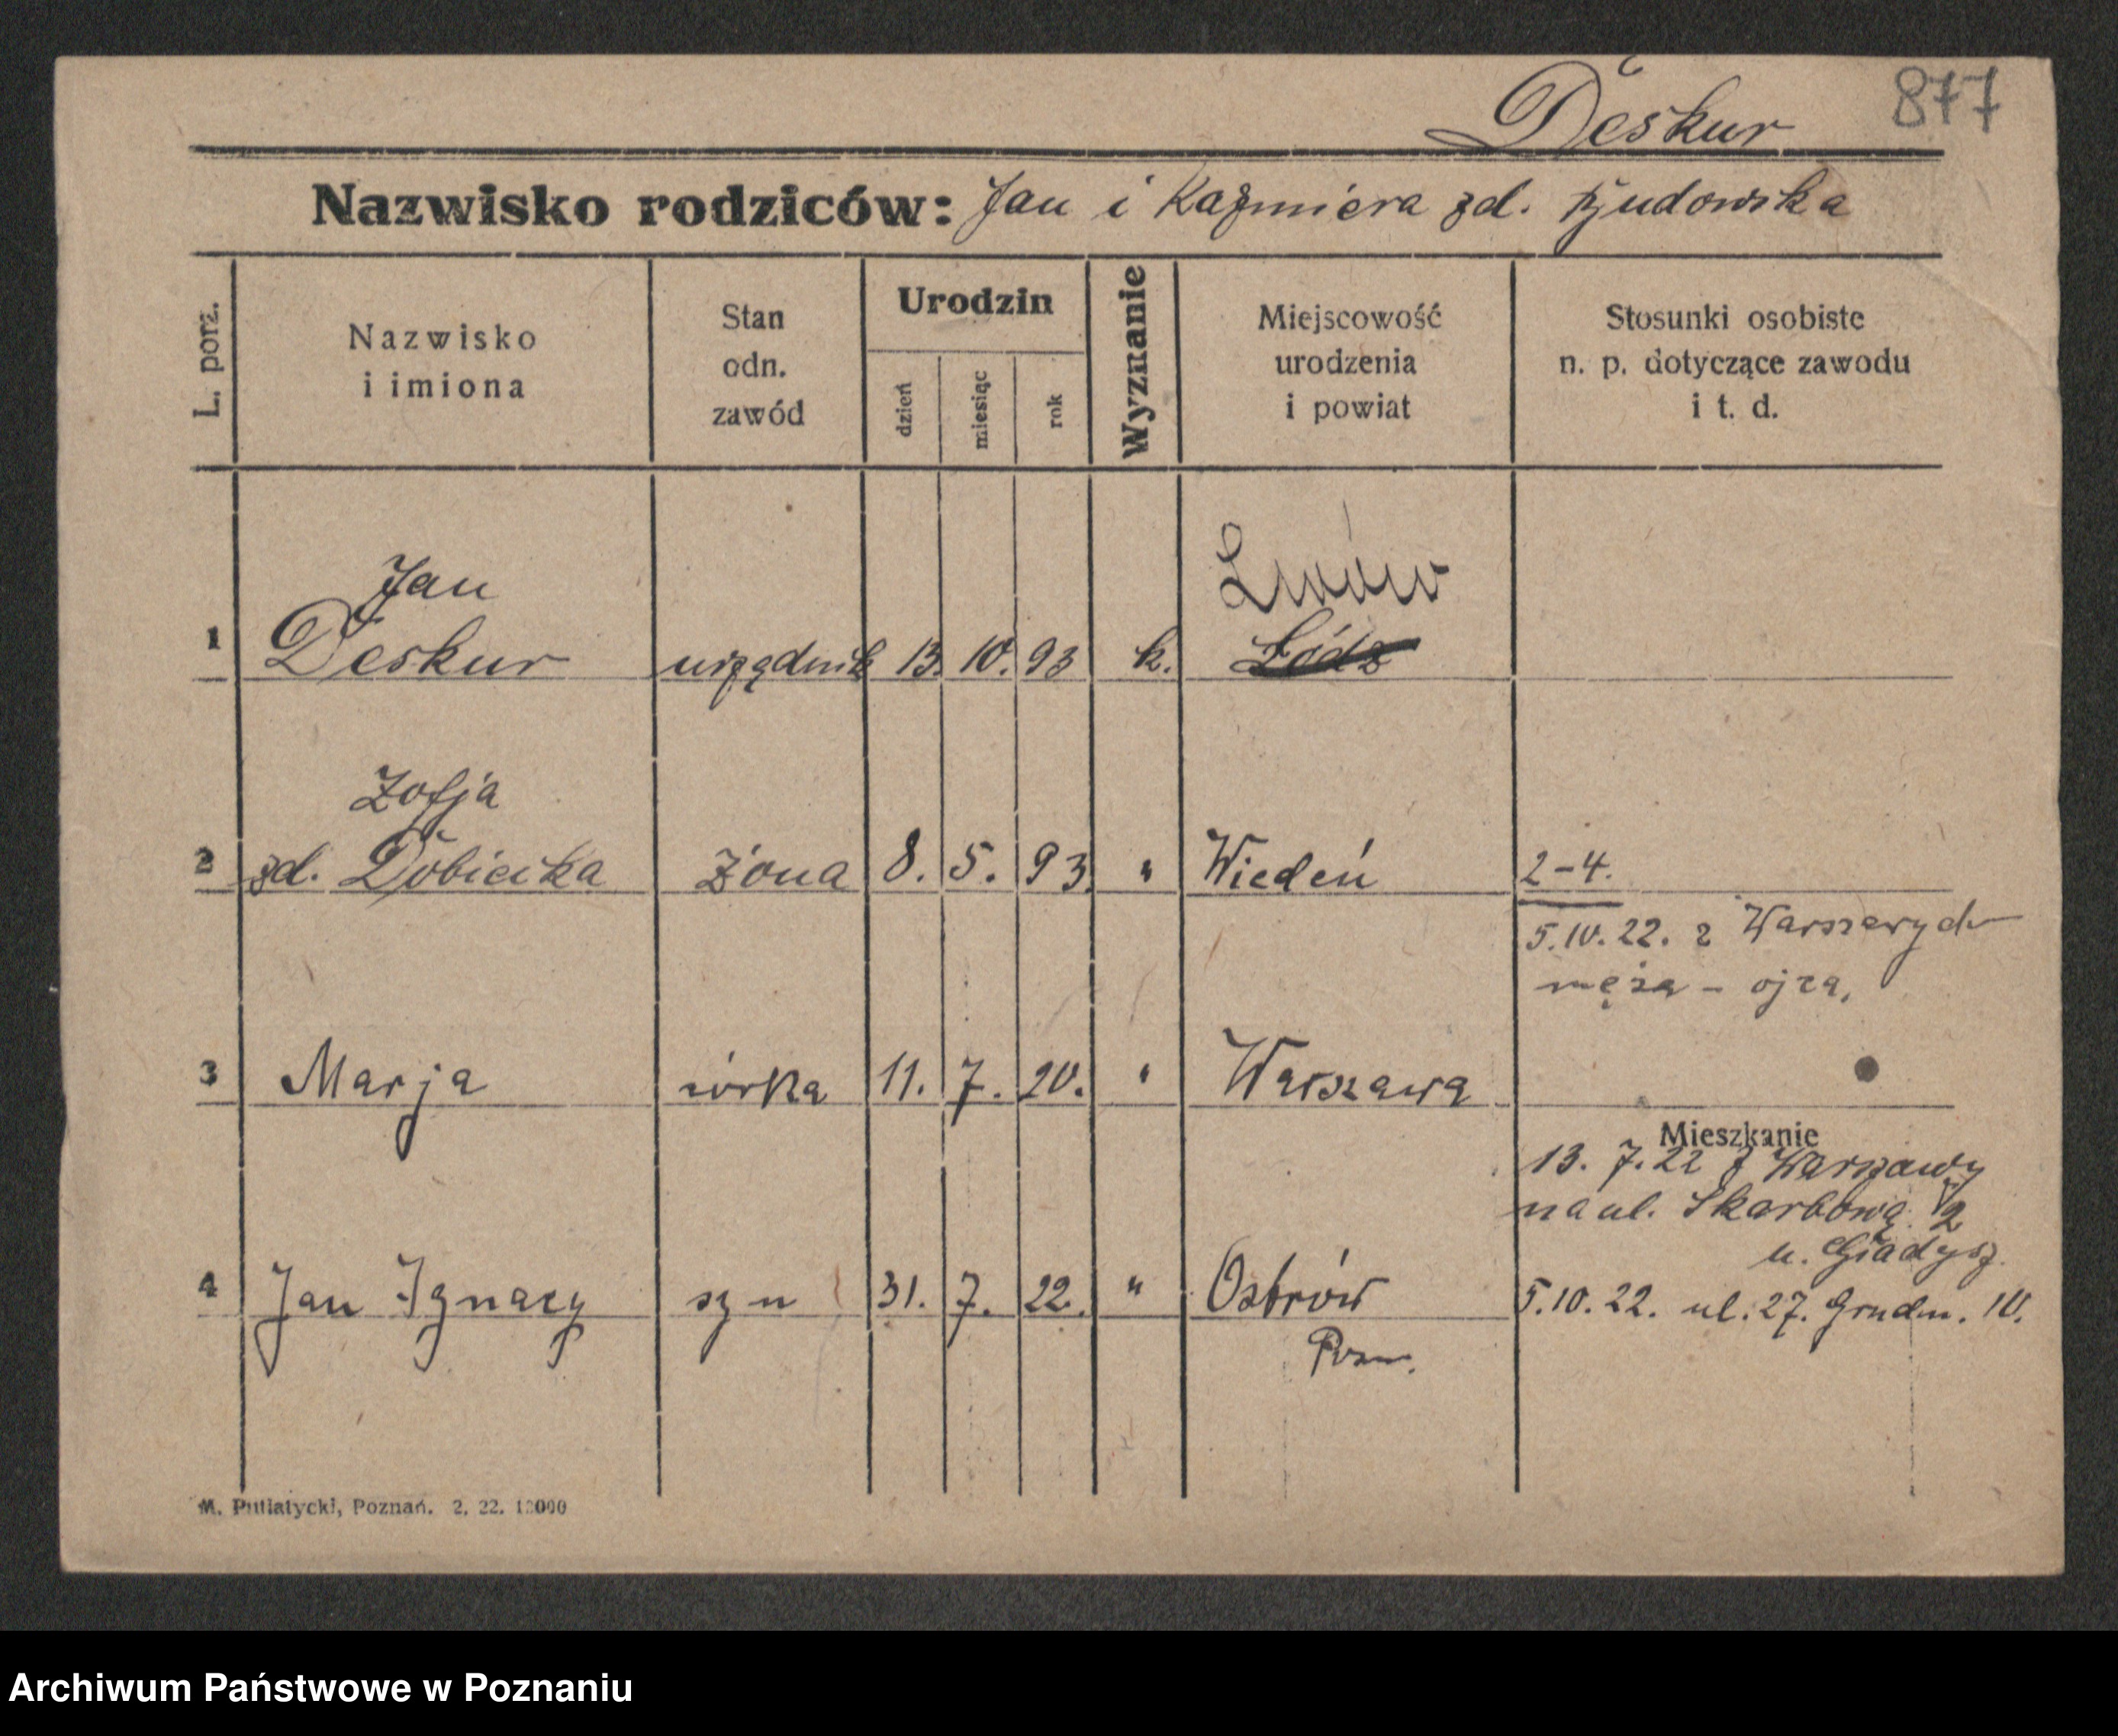 Deskur 877
Nazwisko rodziców: Jan i Kazmiera zd.
L. porz.
Nazwisko
i imiona
Stan
odn.
zawód
Urodzin
dzień
miesiąc
rok
Wyznanie
Miejscowość
urodzenia
i powiat
Stosunki osobiste
n. p. dotyczące zawodu
i t. d.
Jan Lwów
1 Deskur urzędnik 13. 10. 93 k. Łódz
Zofja
2 zd. Dobiecka żona 8. 5. 93 " Wiedeń 2-4.
5.10.22. z Warszawy do
męża - ojca,
3 Marja córka 11. 7. 20. " Warszawa
Mieszkanie
13. 7. 22 z Warszawy
na ul. Skarbową 2
u. Gładysz
4 Jan Ignacy syn 31. 7. 22. " Ostrów 5.10.22. ul. 27. Grudn. 10.
Pozn.
M. Putiatycki, Poznań. 2. 22. 10000
Archiwum Państwowe w Poznaniu